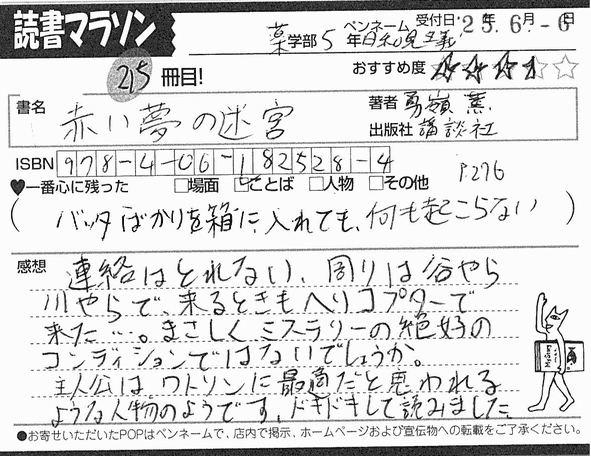 読書マラソン
薬学部 5年 ペンネーム 日和見主義 受付日 '25.6月-6日
215冊目!
おすすめ度 ★★★☆☆
書名 赤い夢の迷宮
著者 勇嶺薫
出版社 講談社
ISBN 978-4-06-182528-4
♥一番心に残った □場面 ☑ことば □人物 □その他 P.276
(バッタばかりを箱に入れても、何も起こらない)
感想 連絡はとれない、周りは谷やら
川やらで、来るときもヘリコプターで
来た…。まさしくミステリーの絶好の
コンディションではないでしょうか。
主人公は、ワトソンに最適だと思われる
ような人物のようです。ドキドキして読みました。
●お寄せいただいたPOPはペンネームで、店内で掲示、ホームページおよび宣伝物への転載をご了承ください。